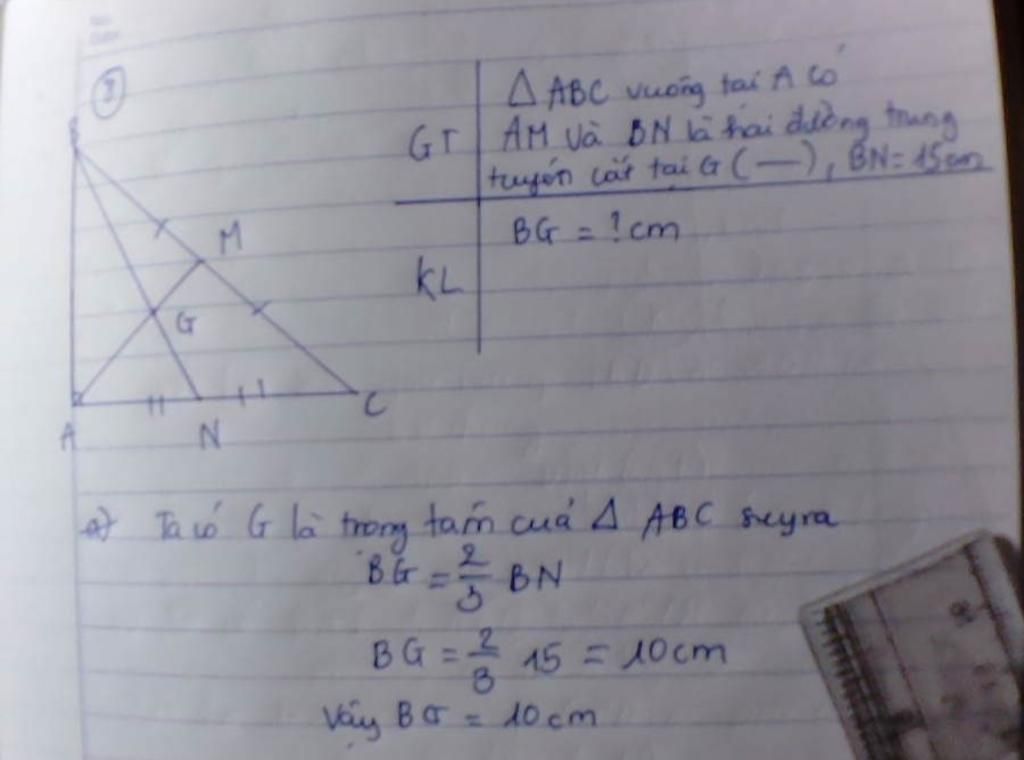 3
Δ ABC vuông tại A có
GT
AM và BN là hai đường trung
tuyến cắt tại G (—), BN = 15cm
BG = ? cm
KL
B
M
G
A
N
C
a) Ta có G là trọng tâm của Δ ABC suy ra
BG = 2/3 BN
BG = 2/3 15 = 10cm
Vậy BG = 10cm